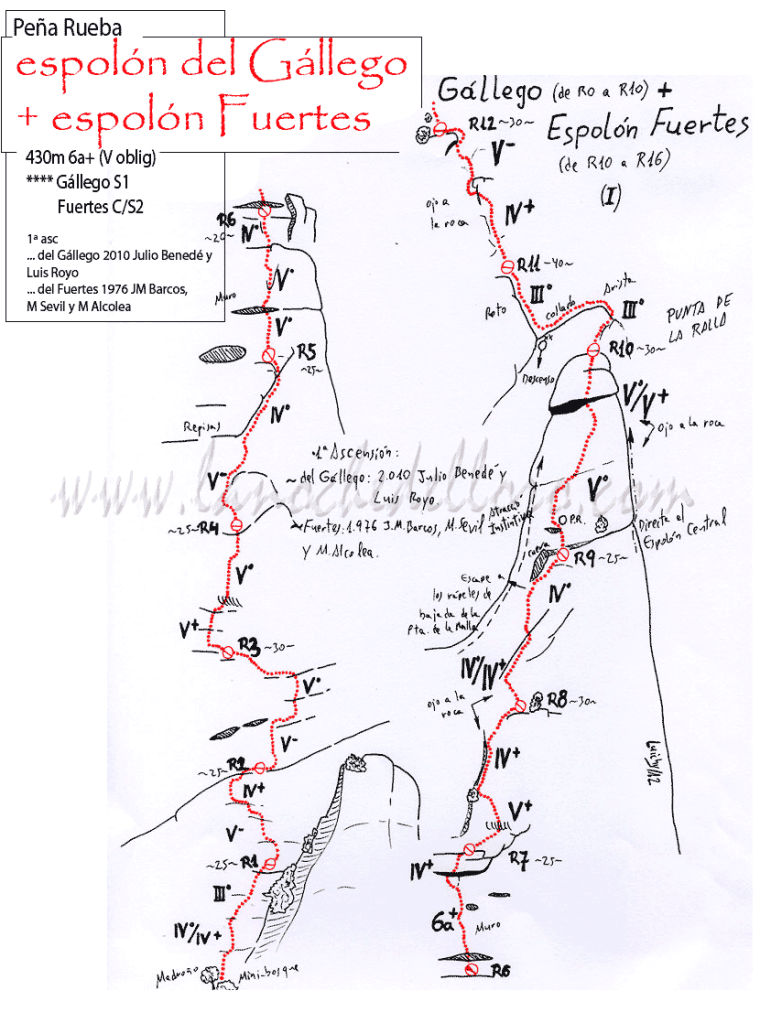 Peña Rueba
espolón del Gállego
+ espolón Fuertes
430m 6a+ (V oblig)
**** Gállego S1
Fuertes C/S2
1ª asc
... del Gállego 2010 Julio Benedé y
Luis Royo
... del Fuertes 1976 JM Barcos,
M Sevil y M Alcolea
Gállego (de R0 a R10) +
Espolón Fuertes
(de R10 a R16)
(I)
R6
~20~
IV°
Muro
V°
V°
R5
~25~
IV°
Repisas
V-
~25~ R4
V°
V+
R3 ~30~
V°
V-
~25~ R2
IV+
V-
~25~ R1
III°
IV°/IV+
Madroño
Mini-bosque
1ª Ascensión:
~ del Gállego: 2.010 Julio Benedé y
Luis Royo
~ Fuertes: 1.976 J.M. Barcos, M. Sevil
y M. Alcolea.
www.
.com
R12 ~30~
V-
ojo a
la roca
IV+
R11 ~40~
III°
Roto
collado
Arista
III°
PUNTA DE
LA RALLA
R10 ~30~
Descenso
V°/V+
ojo a la roca
V°
Atracción
Instintiva
P.R.
cueva
R9 ~25~
Directa al
Espolón Central
Escape a
los rápeles de
bajada de la
Pta. de la Ralla
IV°
IV°/IV+
ojo a la
roca
R8 ~30~
IV+
V+
R7 ~25~
IV+
6a+
Muro
R6